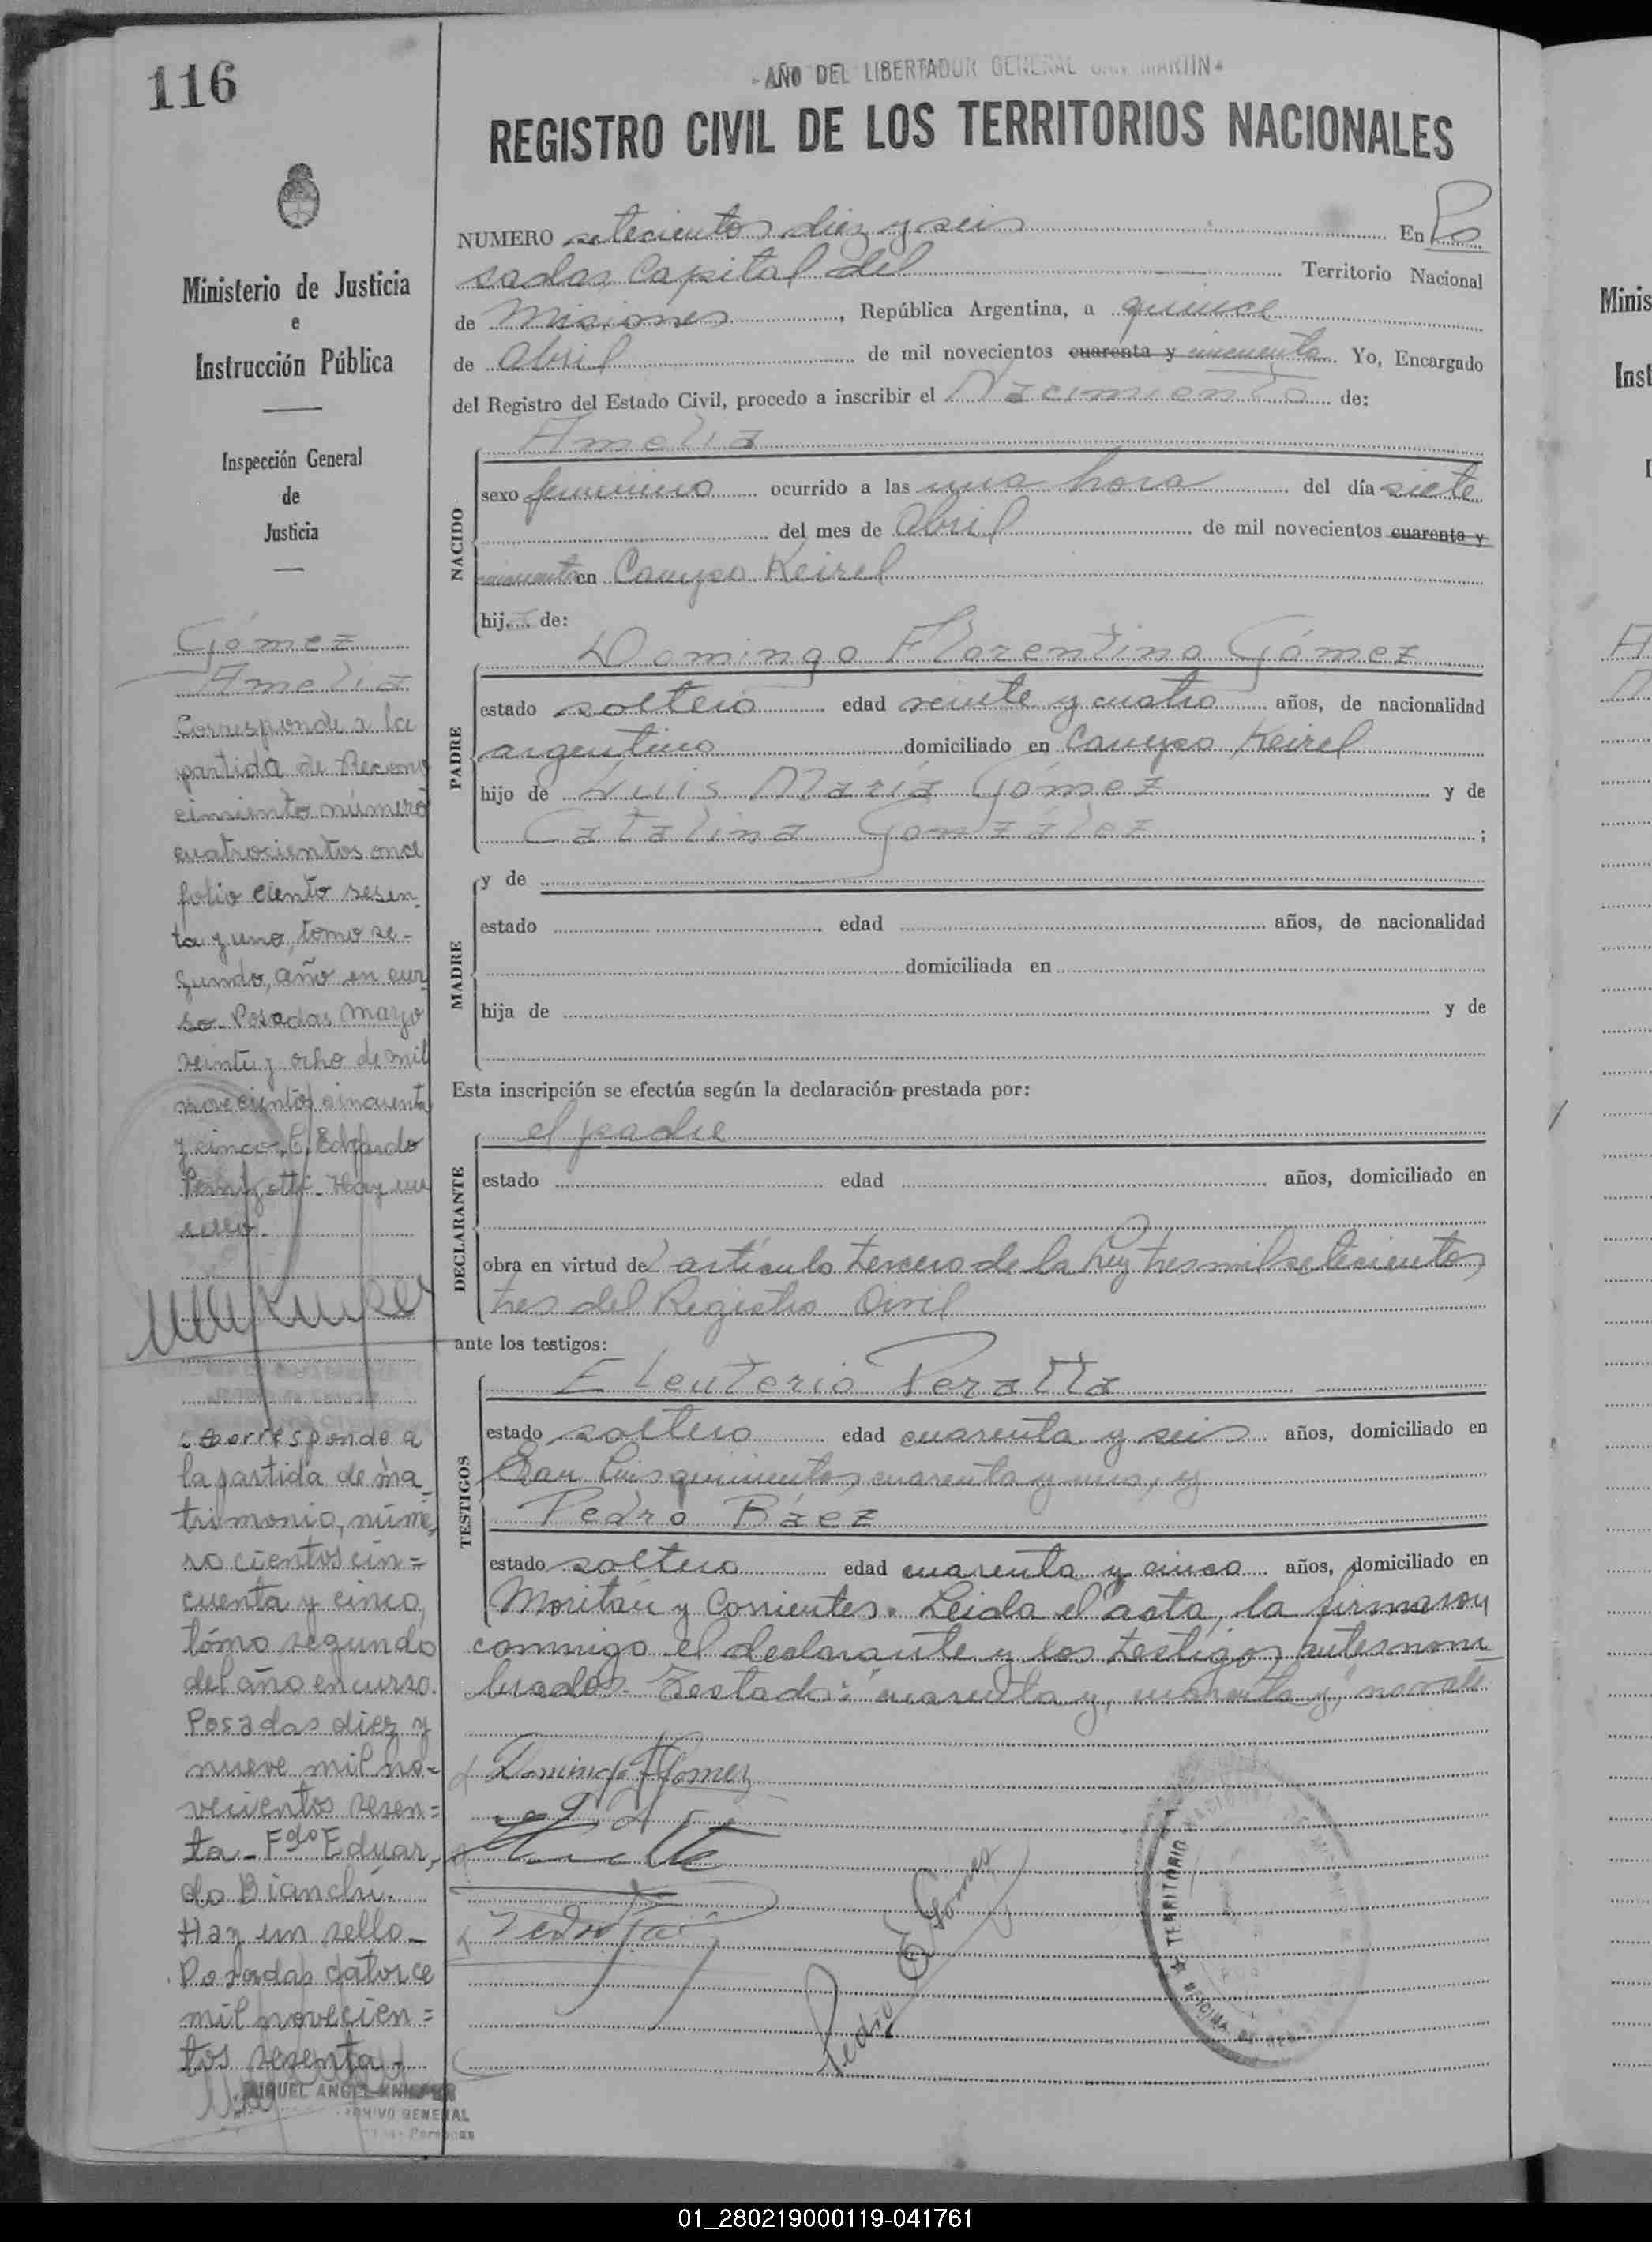 116
Ministerio de Justicia
e
Instrucción Pública
Inspección General
de
Justicia
Gómez
Amelia
Corresponde a la
partida de Recono
cimiento número
cuatrocientos once
folio ciento sesen-
ta y uno, tomo se-
gundo, año en cur
so. Posadas Mayo
veinte y ocho de mil
novecientos cincuenta
y cinco. Eduardo
Hay un
sello.
Corresponde a
la partida de ma_
trimonio, núme_
ro cientos cin=
cuenta y cinco,
tómo segundo
del año en curso.
Posadas diez y
nueve mil no=
vecientos sesen=
ta_ Fdo Eduar_
do Bianchi.
Hay un sello_
Posadas catorce
mil novecien=
tos sesenta_
MIGUEL ANGEL
ARCHIVO GENERAL
AÑO DEL LIBERTADOR GENERAL SAN MARTIN
REGISTRO CIVIL DE LOS TERRITORIOS NACIONALES
NUMERO setecientos diez y seis En Po
sadas Capital del Territorio Nacional
de Misiones, República Argentina, a quince
de Abril de mil novecientos cuarenta y cincuenta Yo, Encargado
del Registro del Estado Civil, procedo a inscribir el Nacimiento de:
Amelia
NACIDO
sexo femenino ocurrido a las una hora del día siete
del mes de Abril de mil novecientos cuarenta y
cincuenta en Campo Keirel
hija de:
PADRE
Domingo Florentino Gómez
estado soltero edad veinte y cuatro años, de nacionalidad
argentino domiciliado en Campo Keirel
hijo de Luis María Gómez y de
Catalina González ;
MADRE
y de
estado edad años, de nacionalidad
domiciliada en
hija de y de
Esta inscripción se efectúa según la declaración prestada por:
DECLARANTE
el padre
estado edad años, domiciliado en
obra en virtud del artículo tercero de la Ley tres mil setecientos
tres del Registro Civil
ante los testigos:
TESTIGOS
Eleuterio Peralta
estado soltero edad cuarenta y seis años, domiciliado en
San Luis quinientos cuarenta y uno, y
Pedro Báez
estado soltero edad cuarenta y cinco años, domiciliado en
Moritán y Corrientes. Leida el acta, la firmaron
conmigo el declarante y los testigos antesnom
brados. Testado: "cuarenta y, cuarenta y," no vale
Domingo F Gomez
Pedro E Gomes
TERRITORIO NACIONAL DE MISIONES
OFICINA DE
01_280219000119-041761